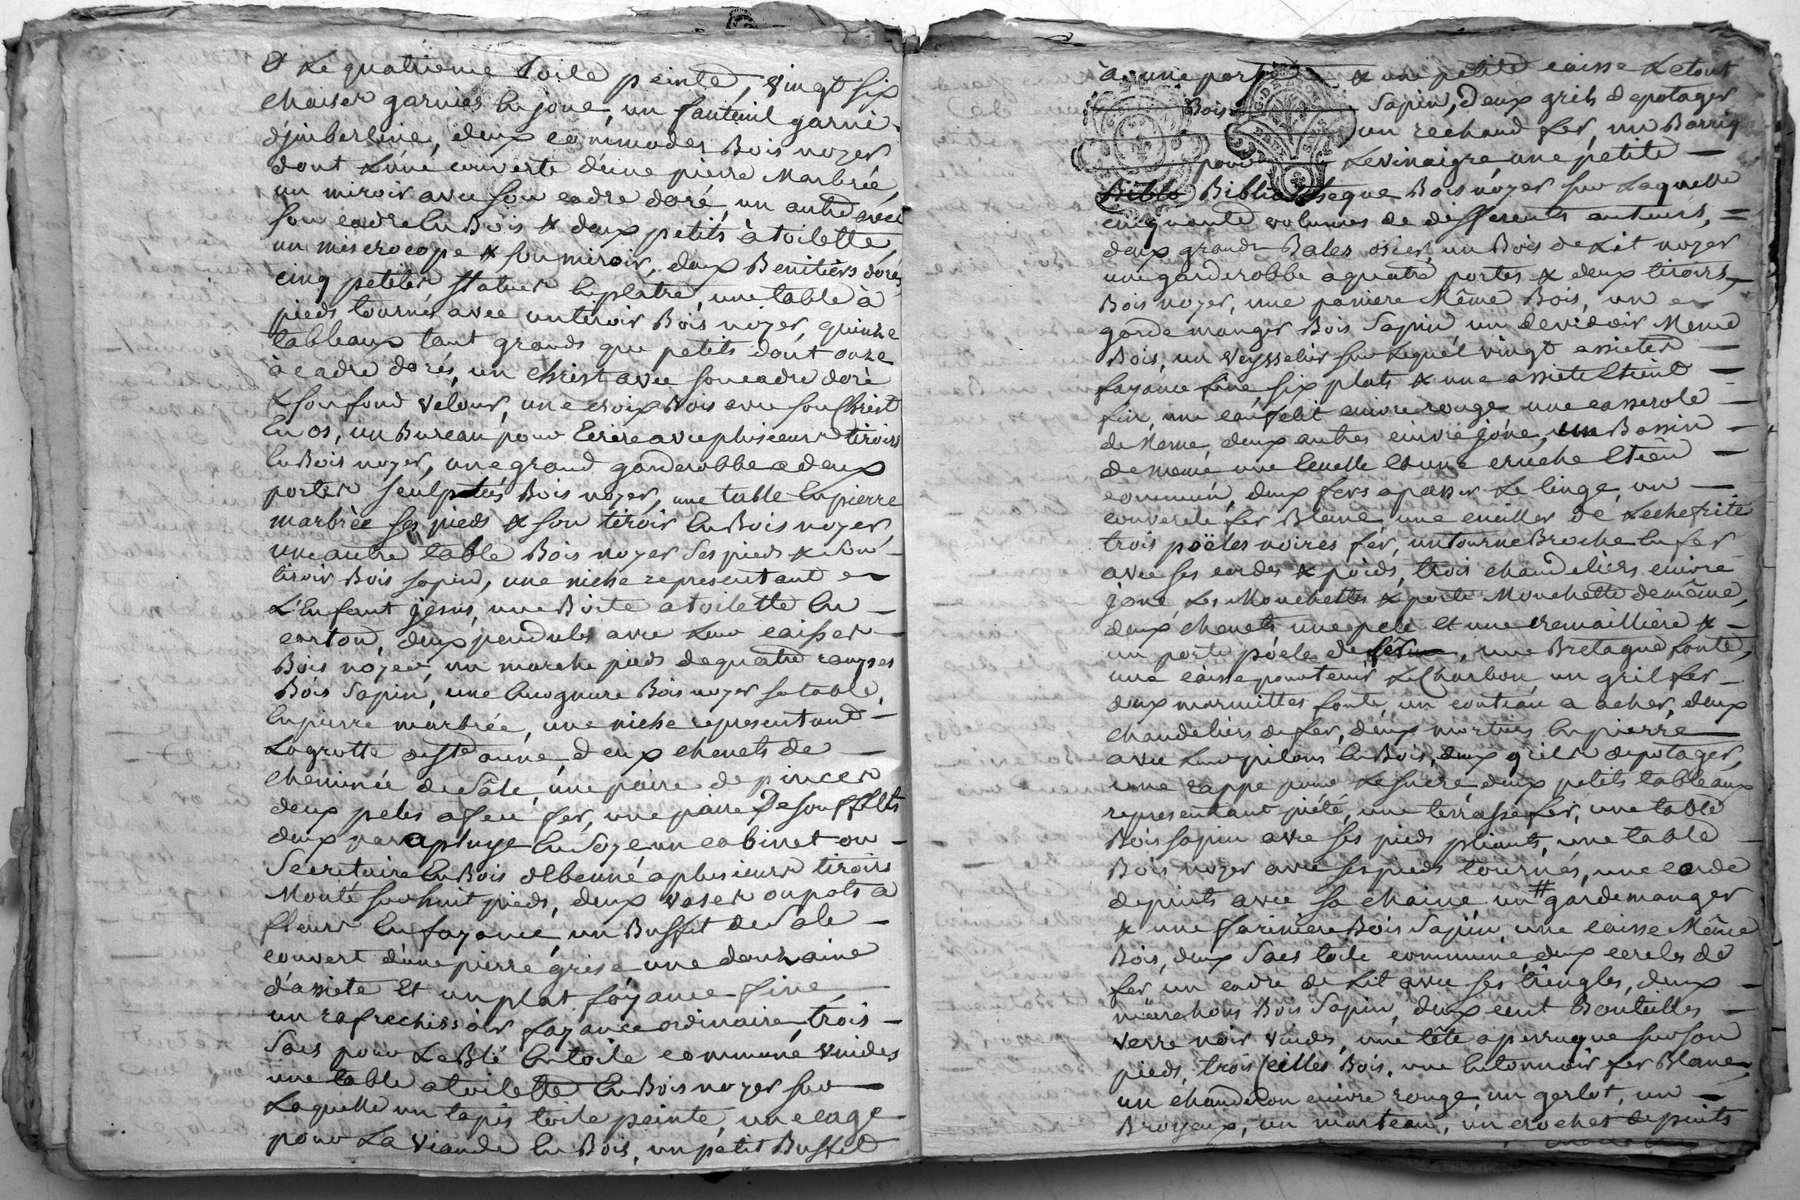 & Le quatrieme Toile peinte, vingt six
chaises garnies En jonc, un fauteuil garni
d'jmberline, deux commodes Bois noyer
dont L'une couverte d'une pierre Marbrée,
un miroir avec son cadre doré, un autre avec
son cadre En Bois & deux petits à toilette,
un miscrocope & son miroir, deux Benitiers dorés,
cinq petites statues En platre, une table à
pieds tournés avec un tiroir Bois noyer, quinze
tableaux tant grands que petits dont onze
à cadre dorés, un christ avec son cadre doré
& son fond velour, une croix Bois avec son Christ
En os, un Bureau pour Ecrire avec plusieurs tiroirs
En Bois noyer, une grand garderobbe a deux
portes sculptées Bois noyer, une table En pierre
marbrée ses pieds & son tiroir En Bois noyer,
une autre table Bois noyer ses pieds & son
tiroir Bois sapin, une niche representant
L'Enfant jesus, une Boite a toilette En
carton, deux pendules avec Leur caisses
Bois noyer, un marche pieds de quatre rangses
Bois Sapin, une Encognure Bois noyer sa table
En pierre marbrée, une niche representant
La grotte de Ste anne, deux chenets de
cheminée de Sale, une paire de pinces
deux peles a feu fer, une paire De soufflets
deux parapluye En Soye un cabinet ou
Secretaire En Bois d'Ebenne a plusieurs tiroirs
Monté sur huit pieds, deux vases ou pots a
fleurs En fayance, un Buffet de Sale
couvert d'une pierre grise une douzaine
d'assiete Et un plat fayance fine
un rafrechissoir fayance ordinaire, trois
Sacs pour Le Blé En toile commune vuides
une table a toilette En Bois noyer sur
Laquelle un tapis toile peinte, une cage
pour La viande En Bois, un petit Buffet
à une porte & une petite caisse Le tout
Bois Sapin, deux grils de potager
un rechaud fer, un Barriq
pour Le vinaigre une petite
Biblo Bibliotheque Bois noyer sur Laquelle
cinquante volumes de differents auteurs,
deux grands Bales osier, un Bois de Lit noyer
une garderobbe a quatre portes & deux tiroirs,
Bois noyer, une paniere Même Bois, un
garde manger Bois Sapin un devidoir Meme
Bois, un veysselier sur Lequel vingt assietes
fayance fine six plats & une assiete Etient
fin, une cuivre rouge une casserole
de Meme, deux autres cuivre jône, un Bassin
de meme une Ecuelle Et une cruche Etien
commun, deux fers a passer Le linge, un
couvercle fer Blanc une cueiller de Lechefrite
trois poëles noires fer, un tourne Broche En fer
avec ses cordes & poids, trois chandeliers cuivre
jône Les Mouchettes & porte Mouchette de même,
deux chenets une pele Et une cremaillière &
un porte poëles de fer, une Bretagne fonte,
une caisse pour tenir Le Charbon, un gril fer
deux marmittes fonte, un couteau a acher, deux
chandeliers de fer, deux mortiers En pierre
avec Leur pilons En Bois, deux grils de potager,
une rappe pour Le Sucre deux petits tableaux
representant piété, une terrasse fer, une table
Bois sapin avec ses pieds pliants, une table
Bois noyer avec ses pieds tournés, une corde
de puits avec sa chaine un # garde manger
& une fariniere Bois Sapin, une caisse Même
Bois, deux Sacs toile commune deux cercles de
fer, un cadre de Lit avec ses tringles, deux
Bois Sapin, deux cent Bouteilles
verre noir vuides, une tête a perruque sur son
pieds, trois seilles Bois, une Entonnoir fer Blanc,
un chauderon cuivre rouge, un gerlot, un
Broyeux, un marteau, un crochet de puits